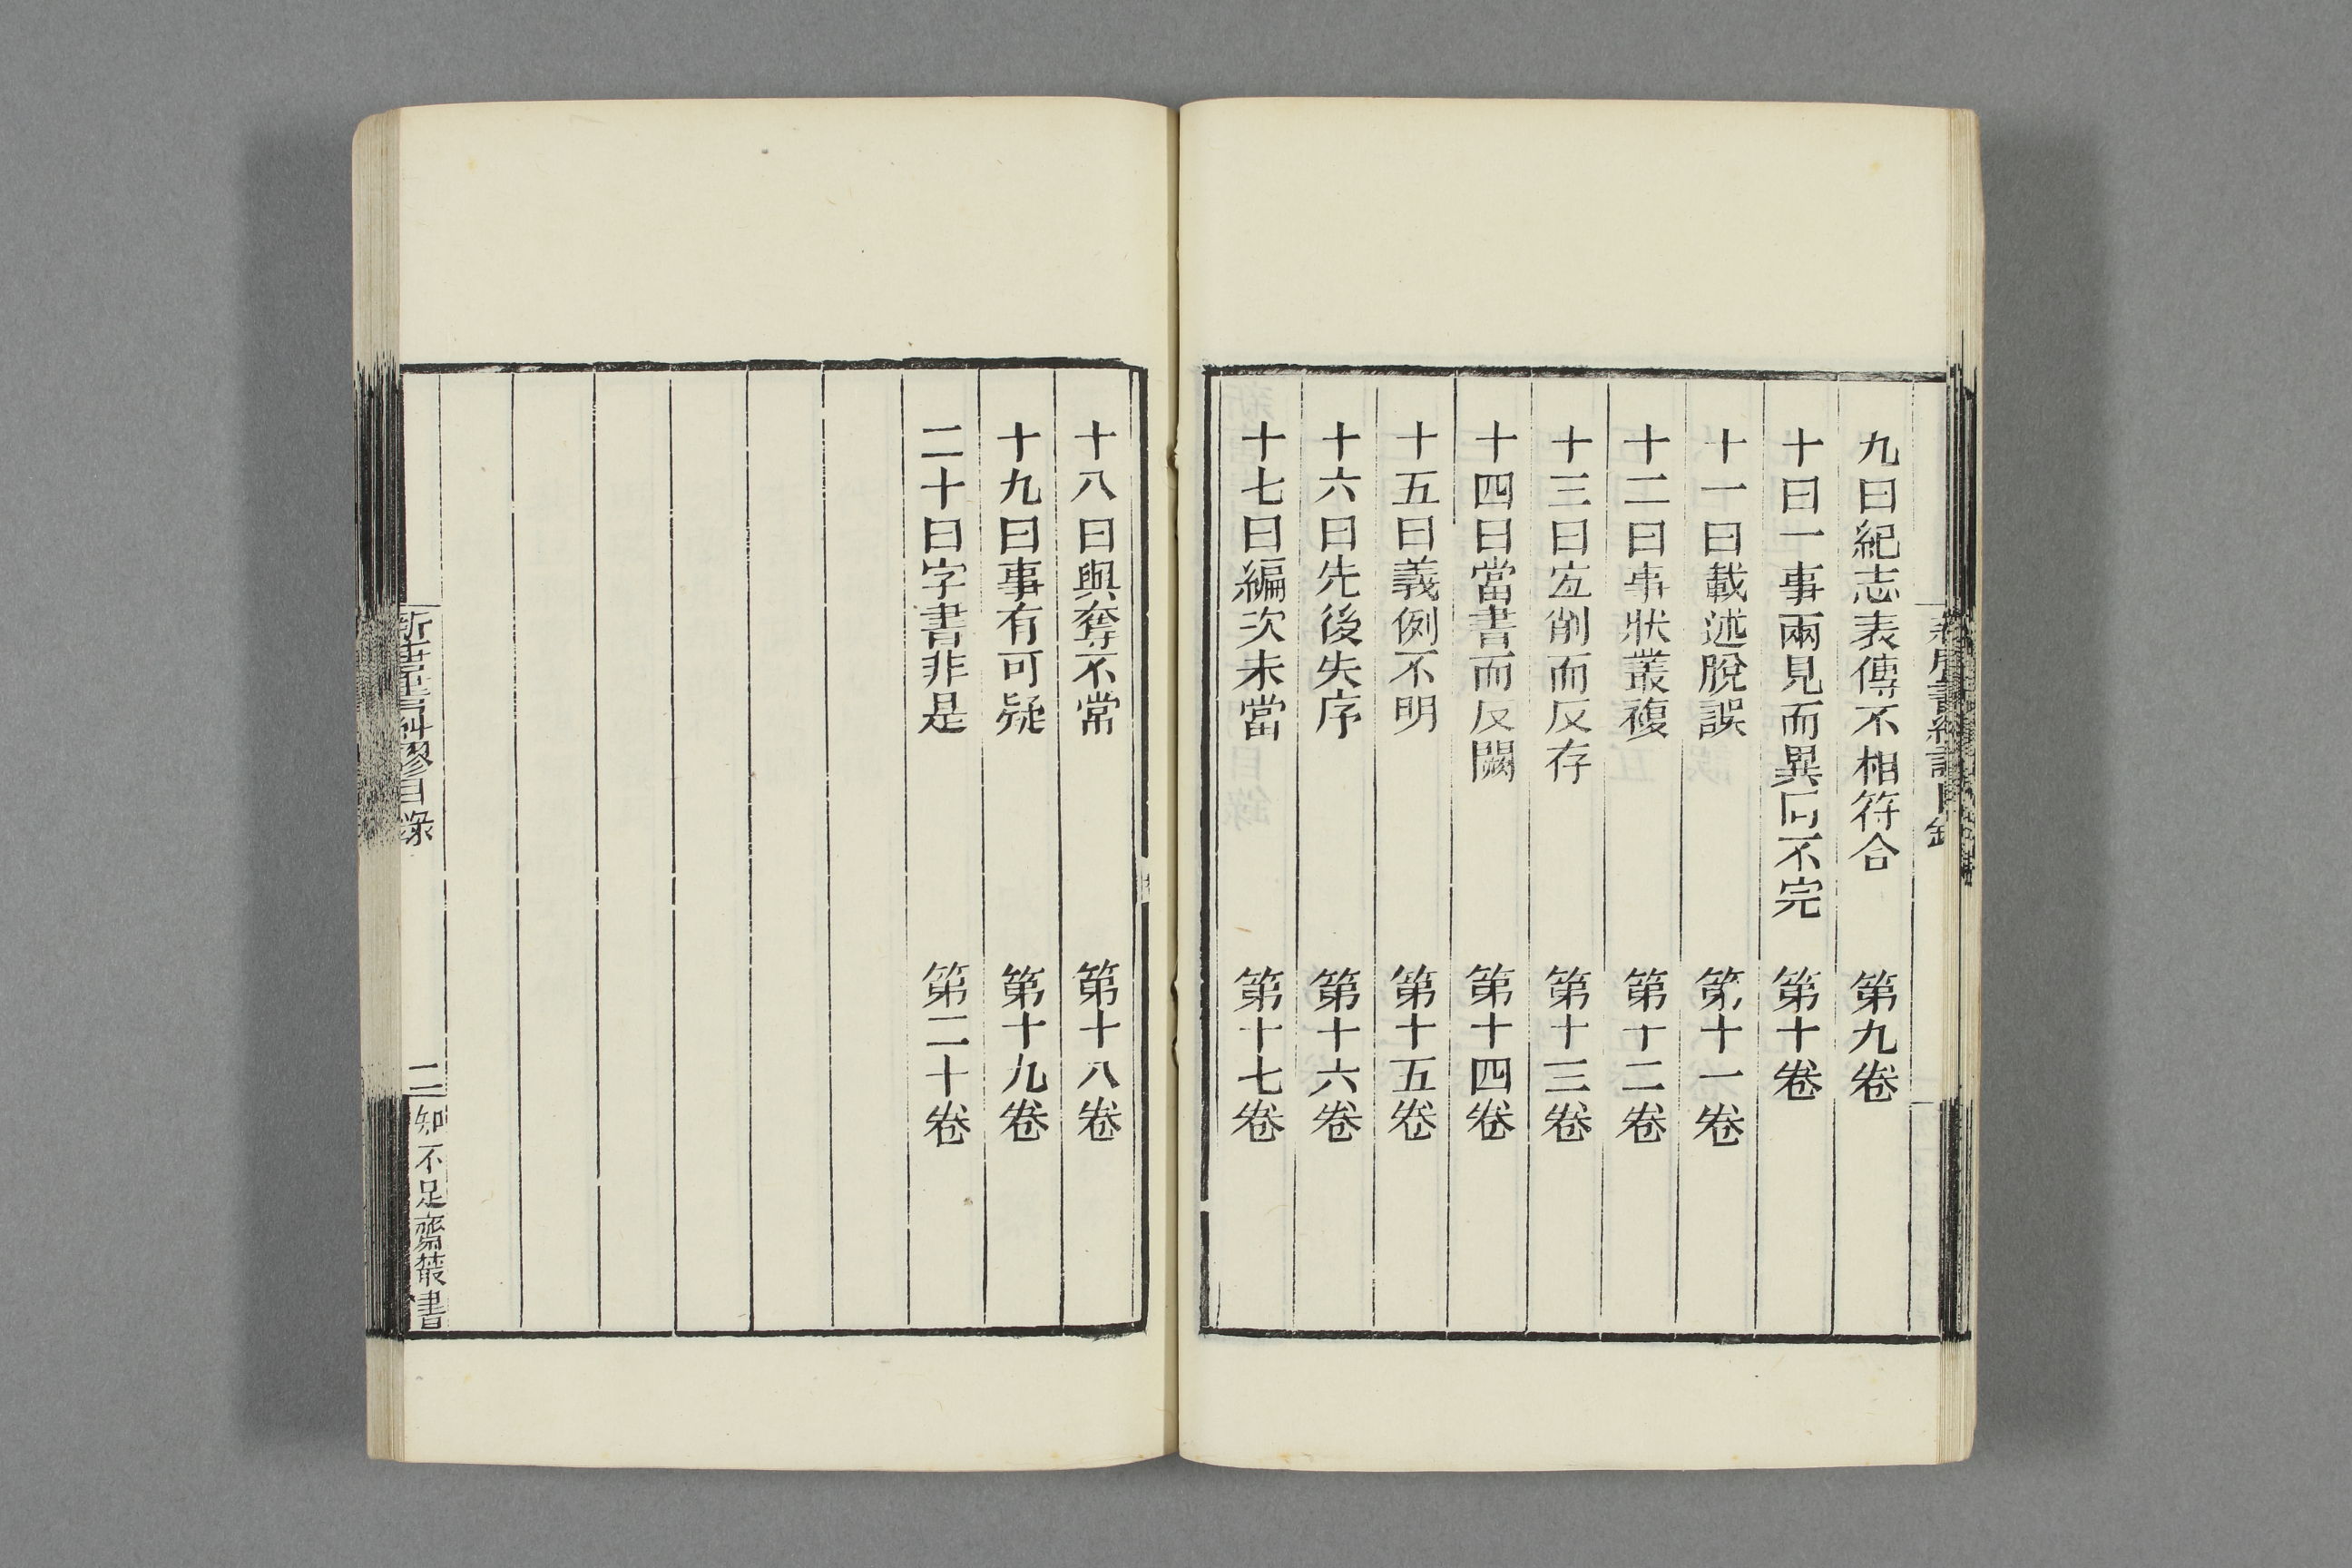 九曰紀志表傳不相符合 第九卷
十曰一事兩見而異同不完 第十卷
十一曰載述脫誤 第十一卷
十二曰事狀叢複 第十二卷
十三曰宐削而反存 第十三卷
十四曰當書而反闕 第十四卷
十五曰義例不明 第十五卷
十六曰先後失序 第十六卷
十七曰編次未當 第十七卷
十八曰與奪不常 第十八卷
十九曰事有可疑 第十九卷
二十曰字書非是 第二十卷
目錄 二 知不足齋叢書